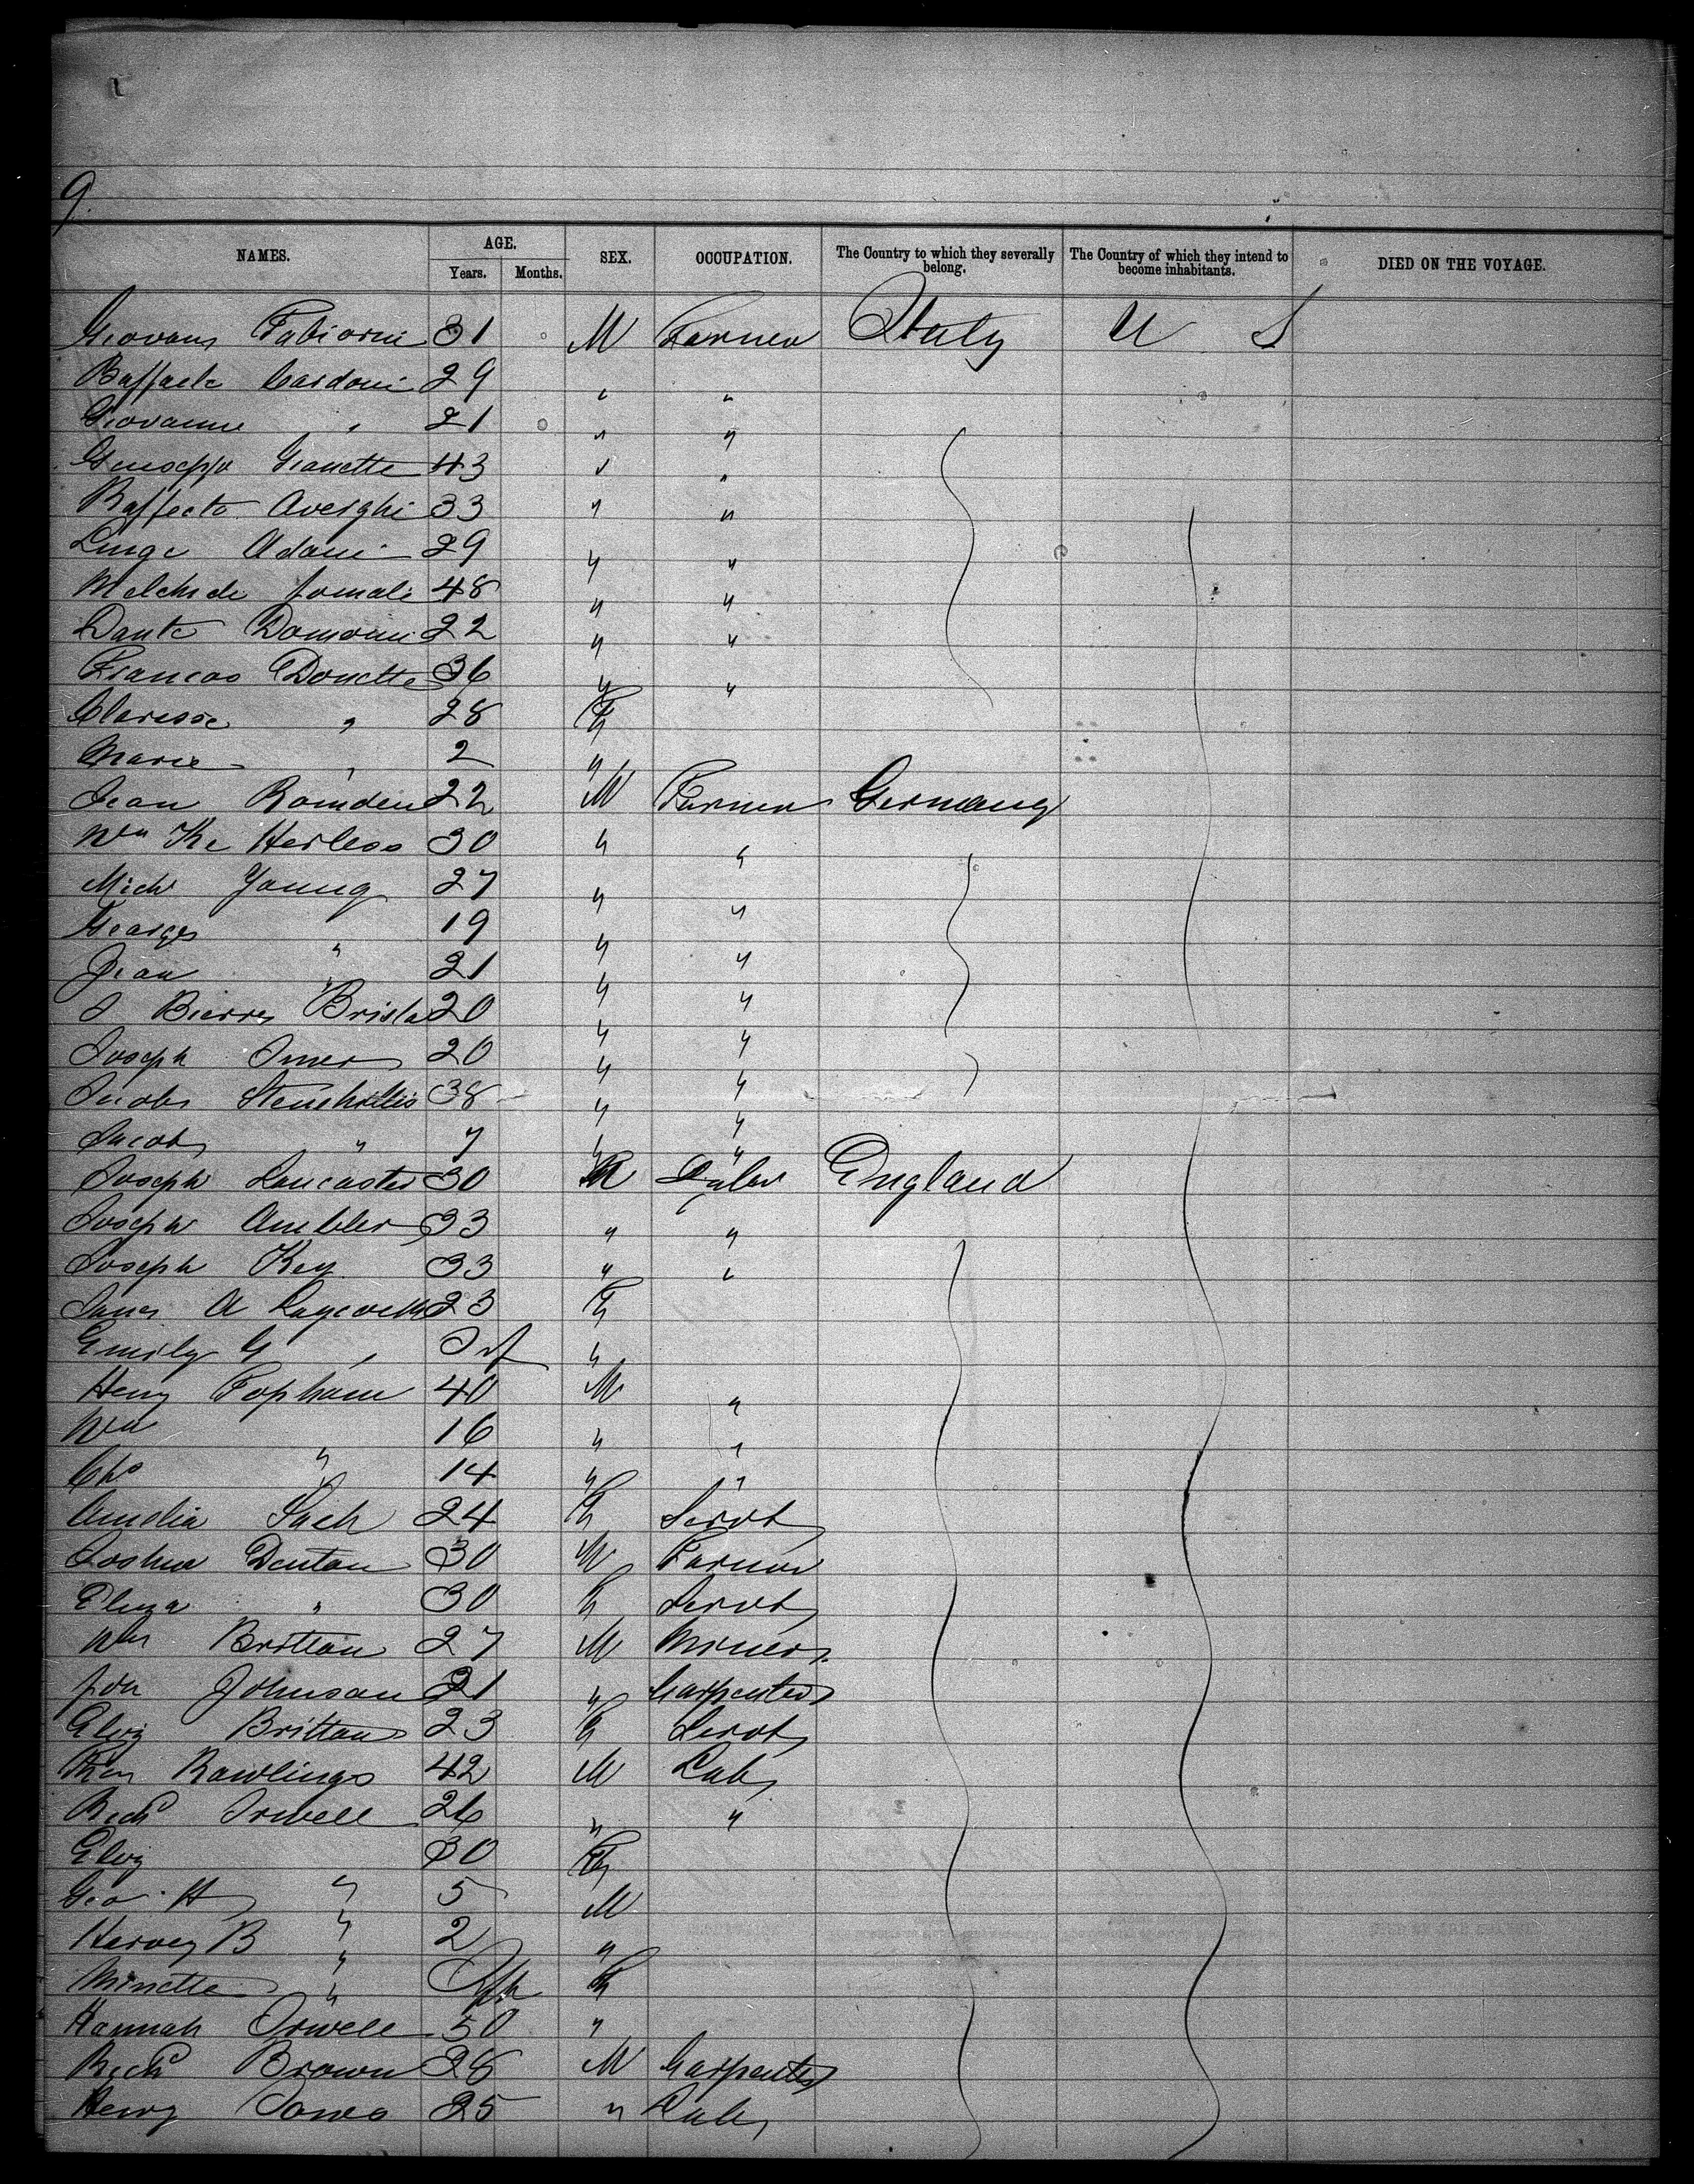 9.
NAMES. AGE. SEX. OCCUPATION. The Country to which they severally belong. The Country of which they intend to become inhabitants. DIED ON THE VOYAGE.
Years. Months.
Giovani Fabiorni 31 M Farmer Italy U S
Raffaele Cardoni 29 " "
Giovanni " 21 " "
Guiseppe Gianette 43 " "
Raffaele Averghi 33 " "
Luige Adami 29 " "
Melchide Tomali 48 " "
Dante Domonni 22 " "
Francas Donette 36 " "
Claresse " 28 F
Marie " 2 "
Jean Romden 22 M Farmer Germany
Wm Ke Herless 30 " "
Mich Young 27 " "
Georges " 19 " "
Jean " 21 " "
J Pierres Brisla 20 " "
Joseph Imer 20 " "
Jacob 38 " "
Jacob " 7 " "
Joseph Lancaster 30 M England
Joseph Ambler 33 " "
Joseph Key 33 " "
A 23 F
Emily G " Inf "
Henry Topham 40 M "
Wm " 16 " "
Chs " 14 " "
Amelia Sach 24 F Servt
Joshua Denton 30 M Farmer
Eliza " 30 F Servt
Wm Brittan 27 M Miner
Jon Johnson 21 " Carpenter
Eliz Brittan 23 F Servt
Rawlings 42 M Lab
Richd Orwell 26 " "
Eliz " 30 F
Geo H " 5 M
Harvey B " 2 "
Minette " Inf F
Hannah Orwell 50 "
Richd Brown 28 M Carpenter
Henry Jones 25 " Lab